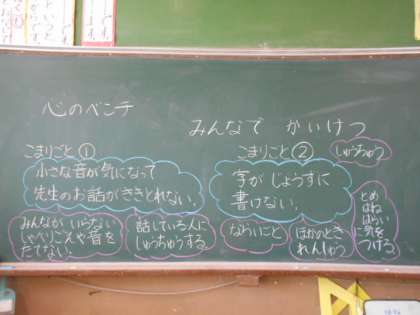 心のベンチ
みんなで かいけつ
こまりごと①
小さな音が気になって
先生のお話がききとれない。
みんながいらない
しゃべりごえや音を
たてない。
話している人に
しゅうちゅうする
こまりごと②
しゅうちゅう
字がじょうずに
書けない。
ならいごと
ほかのとき
れんしゅう
とめ
はね
はらい
に気を
つける